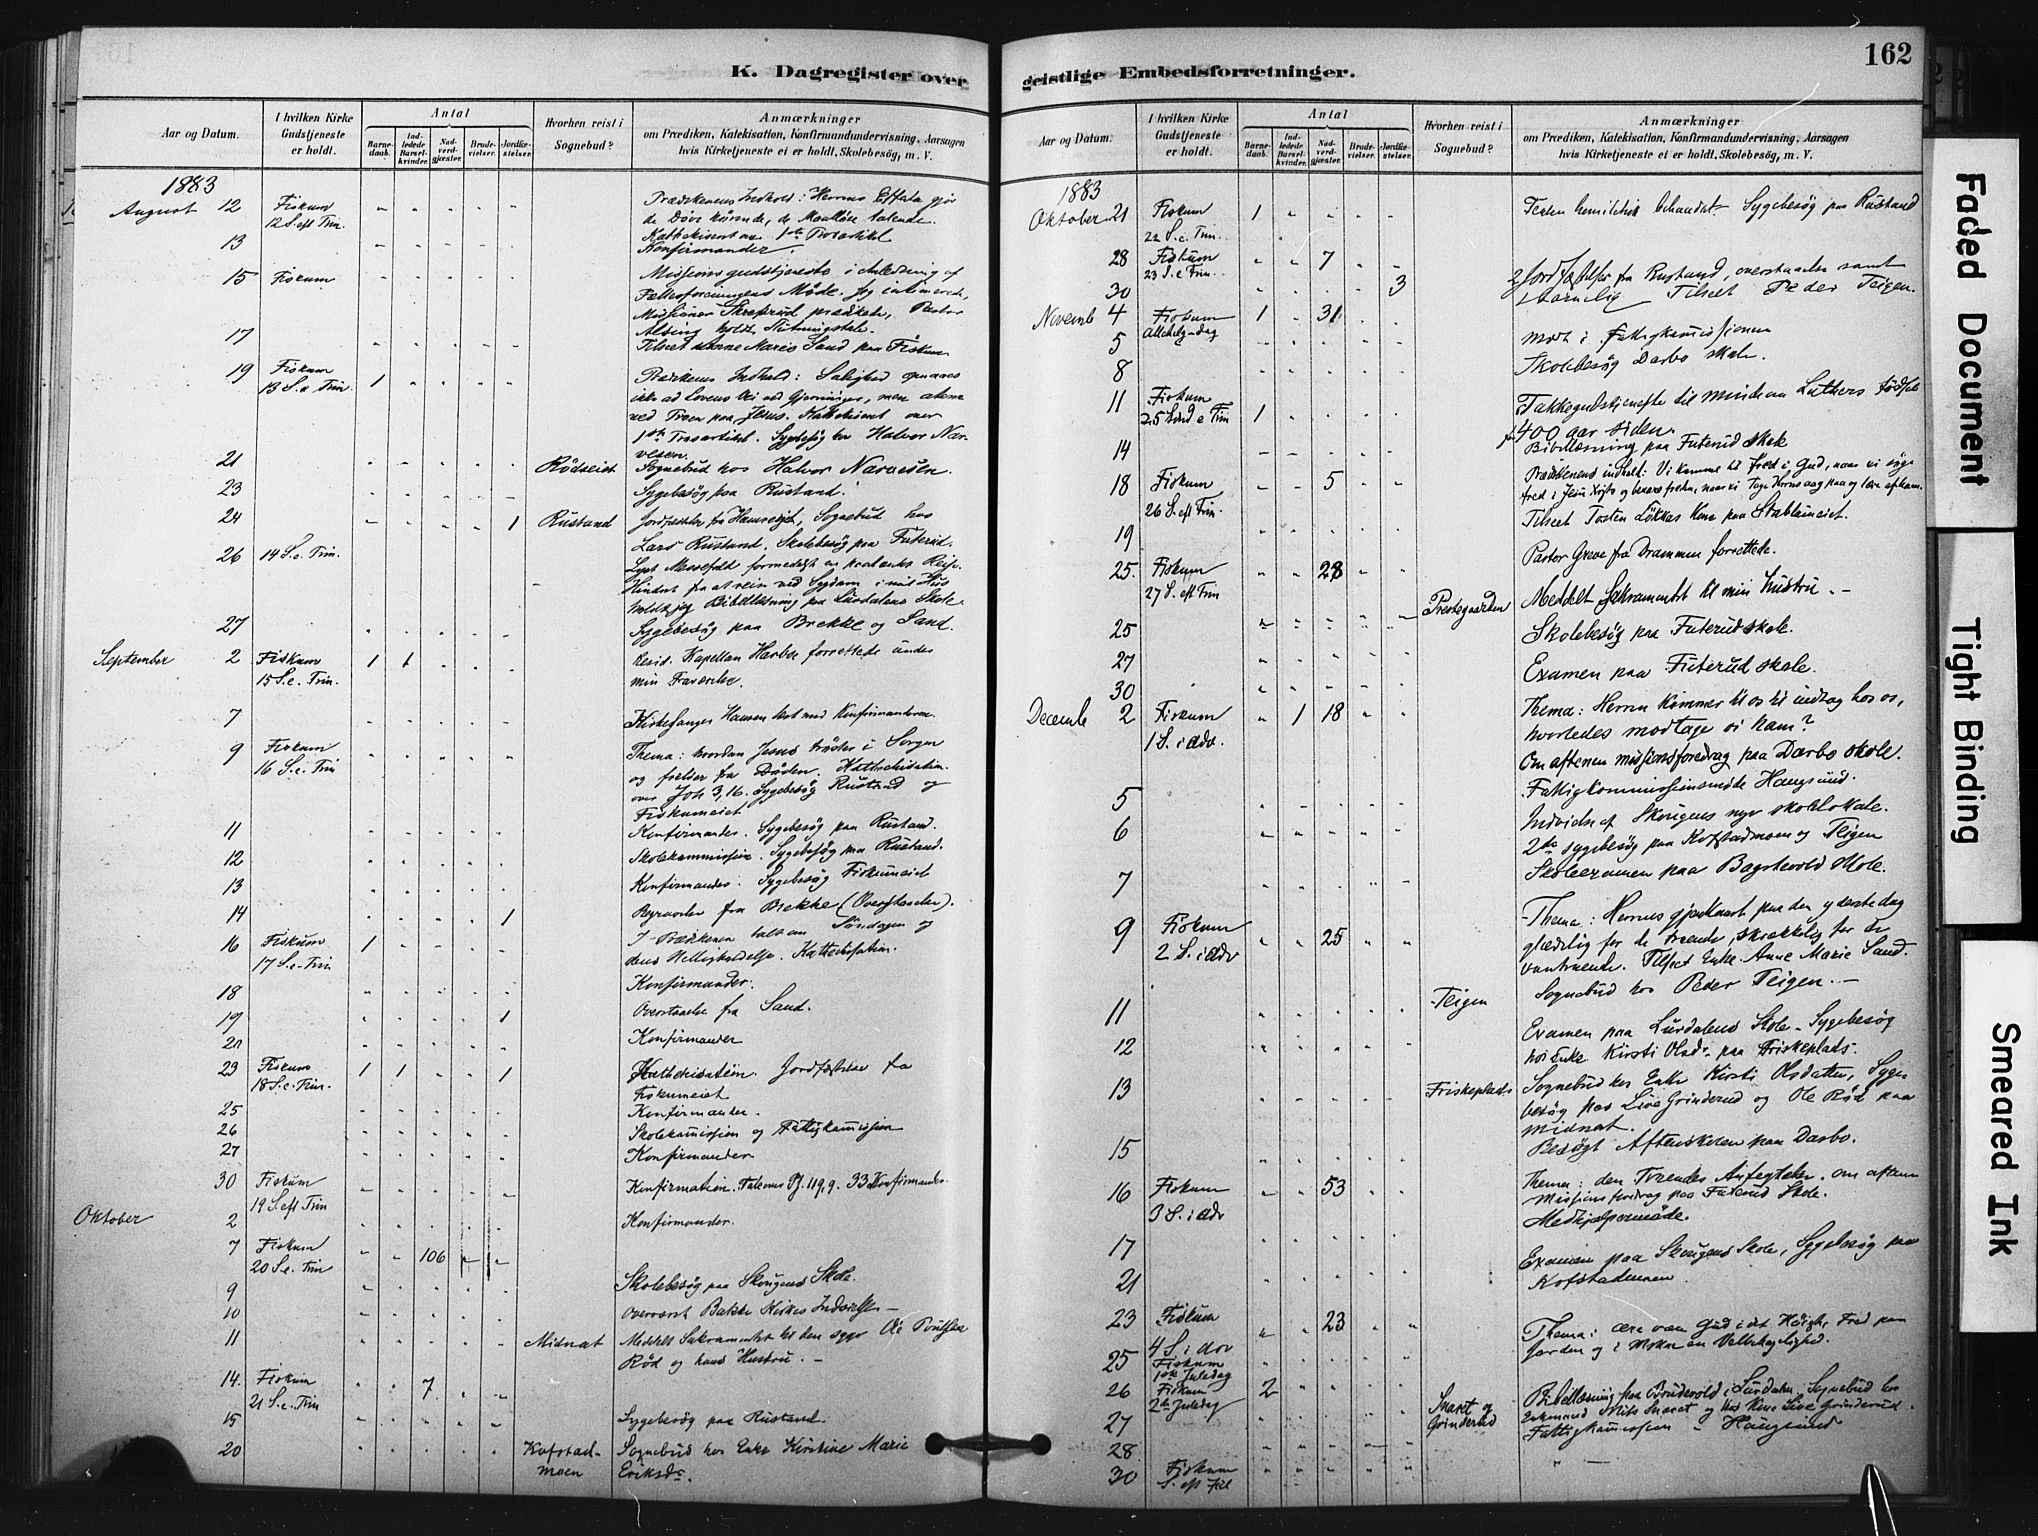 162
K. Dagregister over
geistlige Embedsforretninger.
Aar og Datum.
I hvilken Kirke Gudstjeneste er holdt.
Antal
Barnedaab.
Indledede Barselkvinder.
Nadverdgjæster.
Brudevielser.
Jordfæstelser.
Hvorhen reist i Sognebud?
Anmærkninger
om Prædiken, Katekisation, Konfirmandundervisning, Aarsagen
hvis Kirketjeneste ei er holdt, Skolebesøg, m. V.
1883
August 12 Fiskum - - - - - Prædikenens Indhold: Herrens Effata gjør
12 S. eft Trin. de Døve hørende, de Maalløse talende.
13 - - - - - Konfirmander.
15 Fiskum - - - - - Missionsgudstjeneste i Anledning af
17 - - - - - Tilseet Anne Marie Sand paa Fiskum
19 Fiskum 1 - - - - Prædikenens Indhold: Salighed opnaaes
13 S. e. Trin. ikke ad Lovens Vei ved Gjerninger, men alene
ved Troen paa Jesus. Kathekisert over
1ste Trosartikel. Sygebesøg hos Halvor Nar-
vesen.
21 - - - - - Rødseiet Sognebud hos Halvor Narvesen.
23 - - - - - Sygebesøg paa Rustand.
24 - - - - 1 Rustand Sognebud hos
Lars Rustand. Skolebesøg paa Futerud.
26 14 S. e. Trin.
holdt jeg Bibellæsning paa Lurdalens Skole.
27 - - - - - Sygebesøg paa Brekke og Sand.
September 2 Fiskum 1 1 - - - Resid. Kapellan Harboe forrettede under
15 S. e. Trin. min Fraværelse.
7 - - - - - Kirkesanger Hansen læst med Konfirmanderne
9 Fiskum - - - - - Thema: hvordan Jesus trøster i Sorgen
16 S. e. Trin og frelser fra Døden. Kathekisation
over Joh 3,16. Sygebesøg Rustand og
Fiskumeiet
11 - - - - - Konfirmander. Sygebesøg paa Rustand.
12 - - - - - Skolekommission. Sygebesøg paa Rustand.
13 - - - - - Konfirmander. Sygebesøg Fiskumeiet
14 - - - - 1 Begravelse fra Brekke (Overstaaelse).
16 Fiskum 1 - - - - I Prædikenen talt om Søndagen og
17 S. e. Trin dens Helligholdelse. Kathekisation.
18 - - - - - Konfirmander.
19 - - - - 1 Overstaaelse fra Sand.
21 - - - - - Konfirmander
23 Fiskum 1 1 - - 1 Kathekisation. Jordfæstelse fra
18 S. e. Trin. Fiskumeiet
25 - - - - - Konfirmander.
26 - - - - - Skolekommission og Fattigkommission
27 - - - - - Konfirmander
30 Fiskum - - - - - Konfirmation. Talens Ps. 119,9. 33 Konfirmander.
19 S. eft Trin
Oktober 2 - - - - - Konfirmander.
7 Fiskum - - 106 - -
20 S. e. Trin
9 - - - - - Skolebesøg paa Skougens Skole.
10 - - - - - Overværet Bakke Kirkes Indvielse -
11 - - - - - Midnat Meddelt Sakramentet til den syge Ole Poulsen
Rød og hans Hustru. -
14. Fiskum - - 7 - -
21 S. e. Trin
15 - - - - - Sygebesøg paa Rustand.
20 - - - - - Kofstad-
moen Sognebud hos Enke Kirstine Marie
Eriksdr.
Aar og Datum.
I hvilken Kirke Gudstjeneste er holdt.
Antal
Barnedaab.
Indledede Barselkvinder.
Nadverdgjæster.
Brudevielser.
Jordfæstelser.
Hvorhen reist i Sognebud?
Anmærkninger
om Prædiken, Katekisation, Konfirmandundervisning, Aarsagen
hvis Kirketjeneste ei er holdt, Skolebesøg, m. V.
1883
Oktober 21 Fiskum 1 - - - - Texten homiletisk behandlet - Sygebesøg paa Rustand
22 S. e. Trin.
28 Fiskum - - 7 - -
23 S. e Trin.
30 - - - - 3 2 Jordfæstelser fra Rustand, overstaaelse samt
1 barnelig Tilseet Peder Teigen.
Novemb 4 Fiskum 1 - 31 - -
Allehelg-dag
5 - - - - - Mødt i Fattigkommissionen
8 - - - - - Skolebesøg Darbo skole.
11 Fiskum 1 - - - - Takkegudstjeneste til minde om Luthers Fødsel
25 Sønd e Trin for 400 aar siden.
14 - - - - - Bibellæsning paa Futerud skole
18 Fiskum - - 5 - - Prædikenens indhold: Vi komme til fred i Gud, naar vi søge
26 S. eft Trin.
19 - - - - - Tilseet Tosten Løkkas Kone paa Stableineiet.
25. Fiskum - - 28 - - Pastor Greve fra Drammen forrettede.
27 S. eft Trin
25 - - - - - Prestegaarden Meddelt Sakramentet til min hustru. -
27 - - - - - Skolebesøg paa Futerud skole.
30 - - - - - Examen paa Futerud skole.
Decembe 2 Fiskum - 1 18 - - Thema: Herren kommer til os til indtog hos os,
1 S. i Adv. hvorledes modtage vi ham?
Om aftenen missionsforedrag paa Darbo skole.
5 - - - - - Fattigkommissionsmøde Haugsund.
6 - - - - - Indvielse af Skougens nye skolelokale.
2de sygebesøg paa Kofstadmoen og Teigen
7 - - - - - Skoleexamen paa Bagstevold Skole.
9 Fiskum - - 25 - - Thema: Herrens gjenkomst paa den yderste dag
2 S. i Adv glædelig for de troende, skrækkelig for de
vantroende. Tilseet Enke Anne Marie Sand.
11 - - - - - Teigen Sognebud hos Peder Teigen. -
12 - - - - - Examen paa Lurdalens Skole - Sygebesøg
hos Enke Kirsti Olsdr. paa Friskeplads.
13 - - - - - Friskeplads Sognebud hos Enke Kirsti Olsdatter, Syge-
besøg hos Live Grinderud og Ole Rød paa
Midnat.
15 - - - - - Besøgt Aftenskolen paa Darbo.
16 Fiskum - - 53 - - Thema: den Troendes Anfegtelser. om aftenen
3 S. i Adv missionsforedrag paa Futerud Skole.
17 - - - - - Medhjælpermøde.
21 - - - - - Examen paa Skougens Skole, Sygebesøg paa
Kofstadmoen
23 Fiskum - - 23 - - Thema: ære være Gud i det Høieste, Fred paa
4 S. i Adv Jorden og i Mennesker Velbehagelighed.
25 Fiskum
1ste Juledag
26 Fiskum 2 - - - -
2den Juledag
27 - - - - - Snaret og
Grinderud Bibellæsning paa Brudevold i Lurdalen. Sognebud hos
Enkemand Nils Snaret og hos Kone Live Grinderud.
28 - - - - - Fattigkommission - Haugsund
30 Fiskum
S. eft Jul
Faded Document
Tight Binding
Smeared Ink